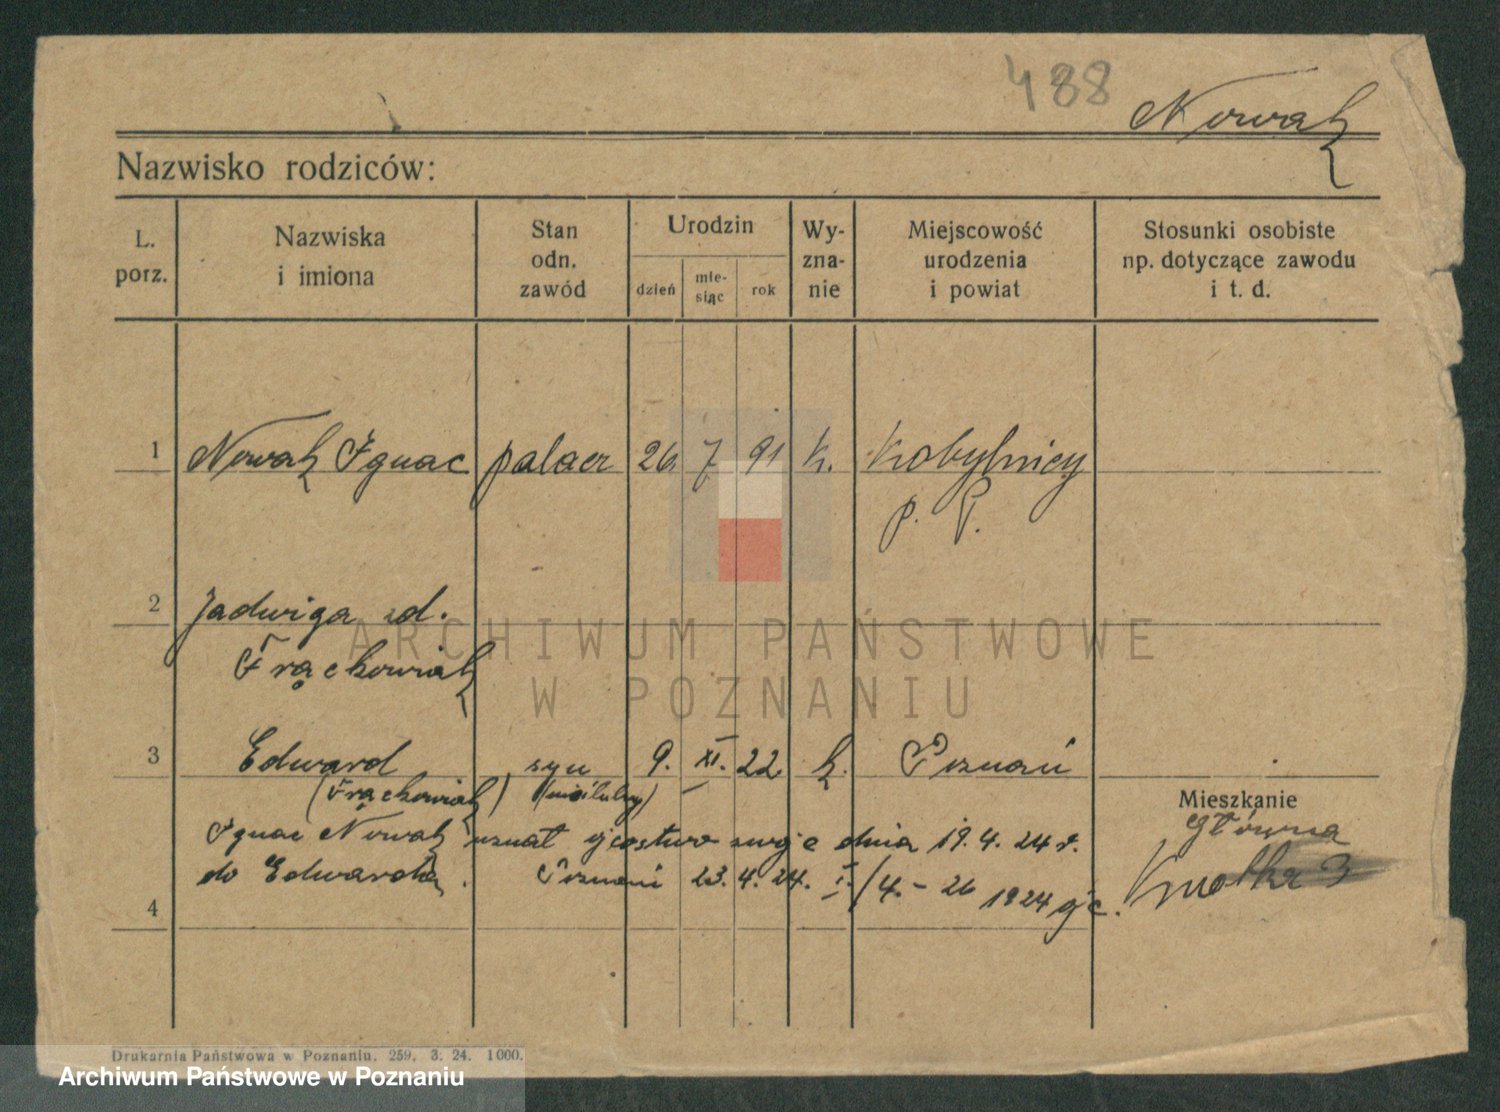 488
Nowak
Nazwisko rodziców:
L. porz.
Nazwiska i imiona
Stan odn. zawód
Urodzin
dzień
mie-
siąc
rok
Wy-
zna-
nie
Miejscowość urodzenia i powiat
Stosunki osobiste
np. dotyczące zawodu
i t. d.
1 Nowak Ignac palacz 26 7 91 k. Kobylnicy
p. P.
2 Jadwiga zd.
Frąckowiak
3 Edward syn 9. XI. 22 k. Poznań
(Frąckowiak)
Mieszkanie
Główna
Ignac Nowak uznał ojcostwo swoje dnia 19.4.24 r.
do Edwarda. Poznań 23.4.24. I./4.-26 1924
4
Drukarnia Państwowa w Poznaniu. 259. 3. 24. 1000.
ARCHIWUM PAŃSTWOWE
W POZNANIU
Archiwum Państwowe w Poznaniu